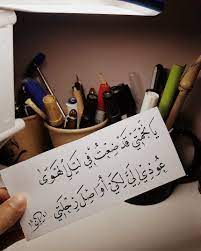 يَا نَجْمَتِي قَدْ ضِعْتُ فِي لَيْلِ الْهَوَىٰ
عُودِي إِلَيَّ لِكَيْ أُوَاصِلَ رِحْلَتِي